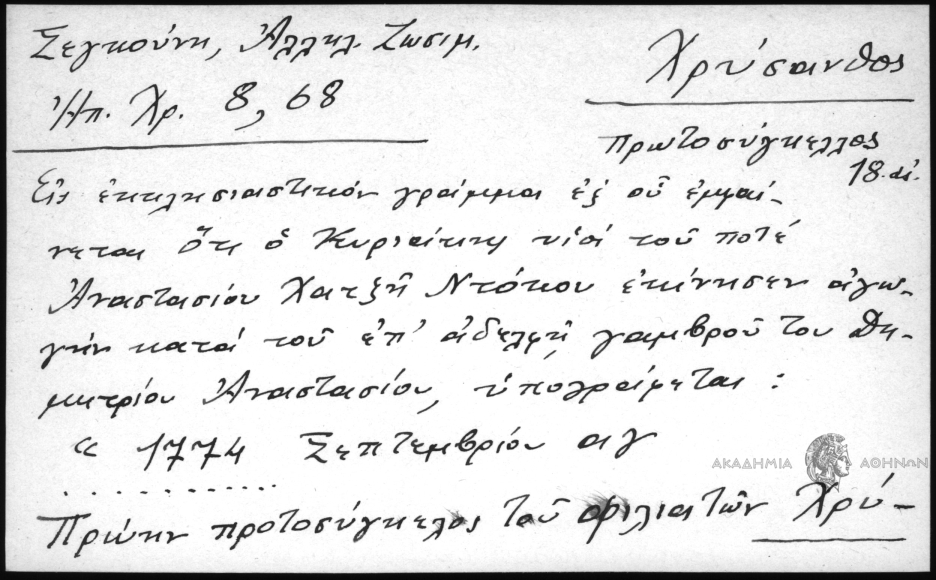 Σεγκούνη, Ἀλληλ. Ζωσιμ.
Ἠπ. Χρ. 8, 68
Χρύσανθος
πρωτοσύγκελλος
18. αἰ.
Εἰς ἐκκλησιαστικόν γράμμα ἐξ οὗ ἐμφαί-
νεται ὅτι ὁ Κυριάκης υἱός τοῦ ποτέ
Ἀναστασίου Χατζῆ Ντόκου ἐκίνησεν ἀγω-
γήν κατά τοῦ ἐπ' ἀδελφῇ γαμβροῦ του Δη-
μητρίου Ἀναστασίου, ὑπογράφεται :
" 1774 Σεπτεμβρίου αγ
..............
Πρώην προτοσύγκελος τοῦ φιλιατῶν Χρύ-
ΑΚΑΔΗΜΙΑ ΑΘΗΝΩΝ